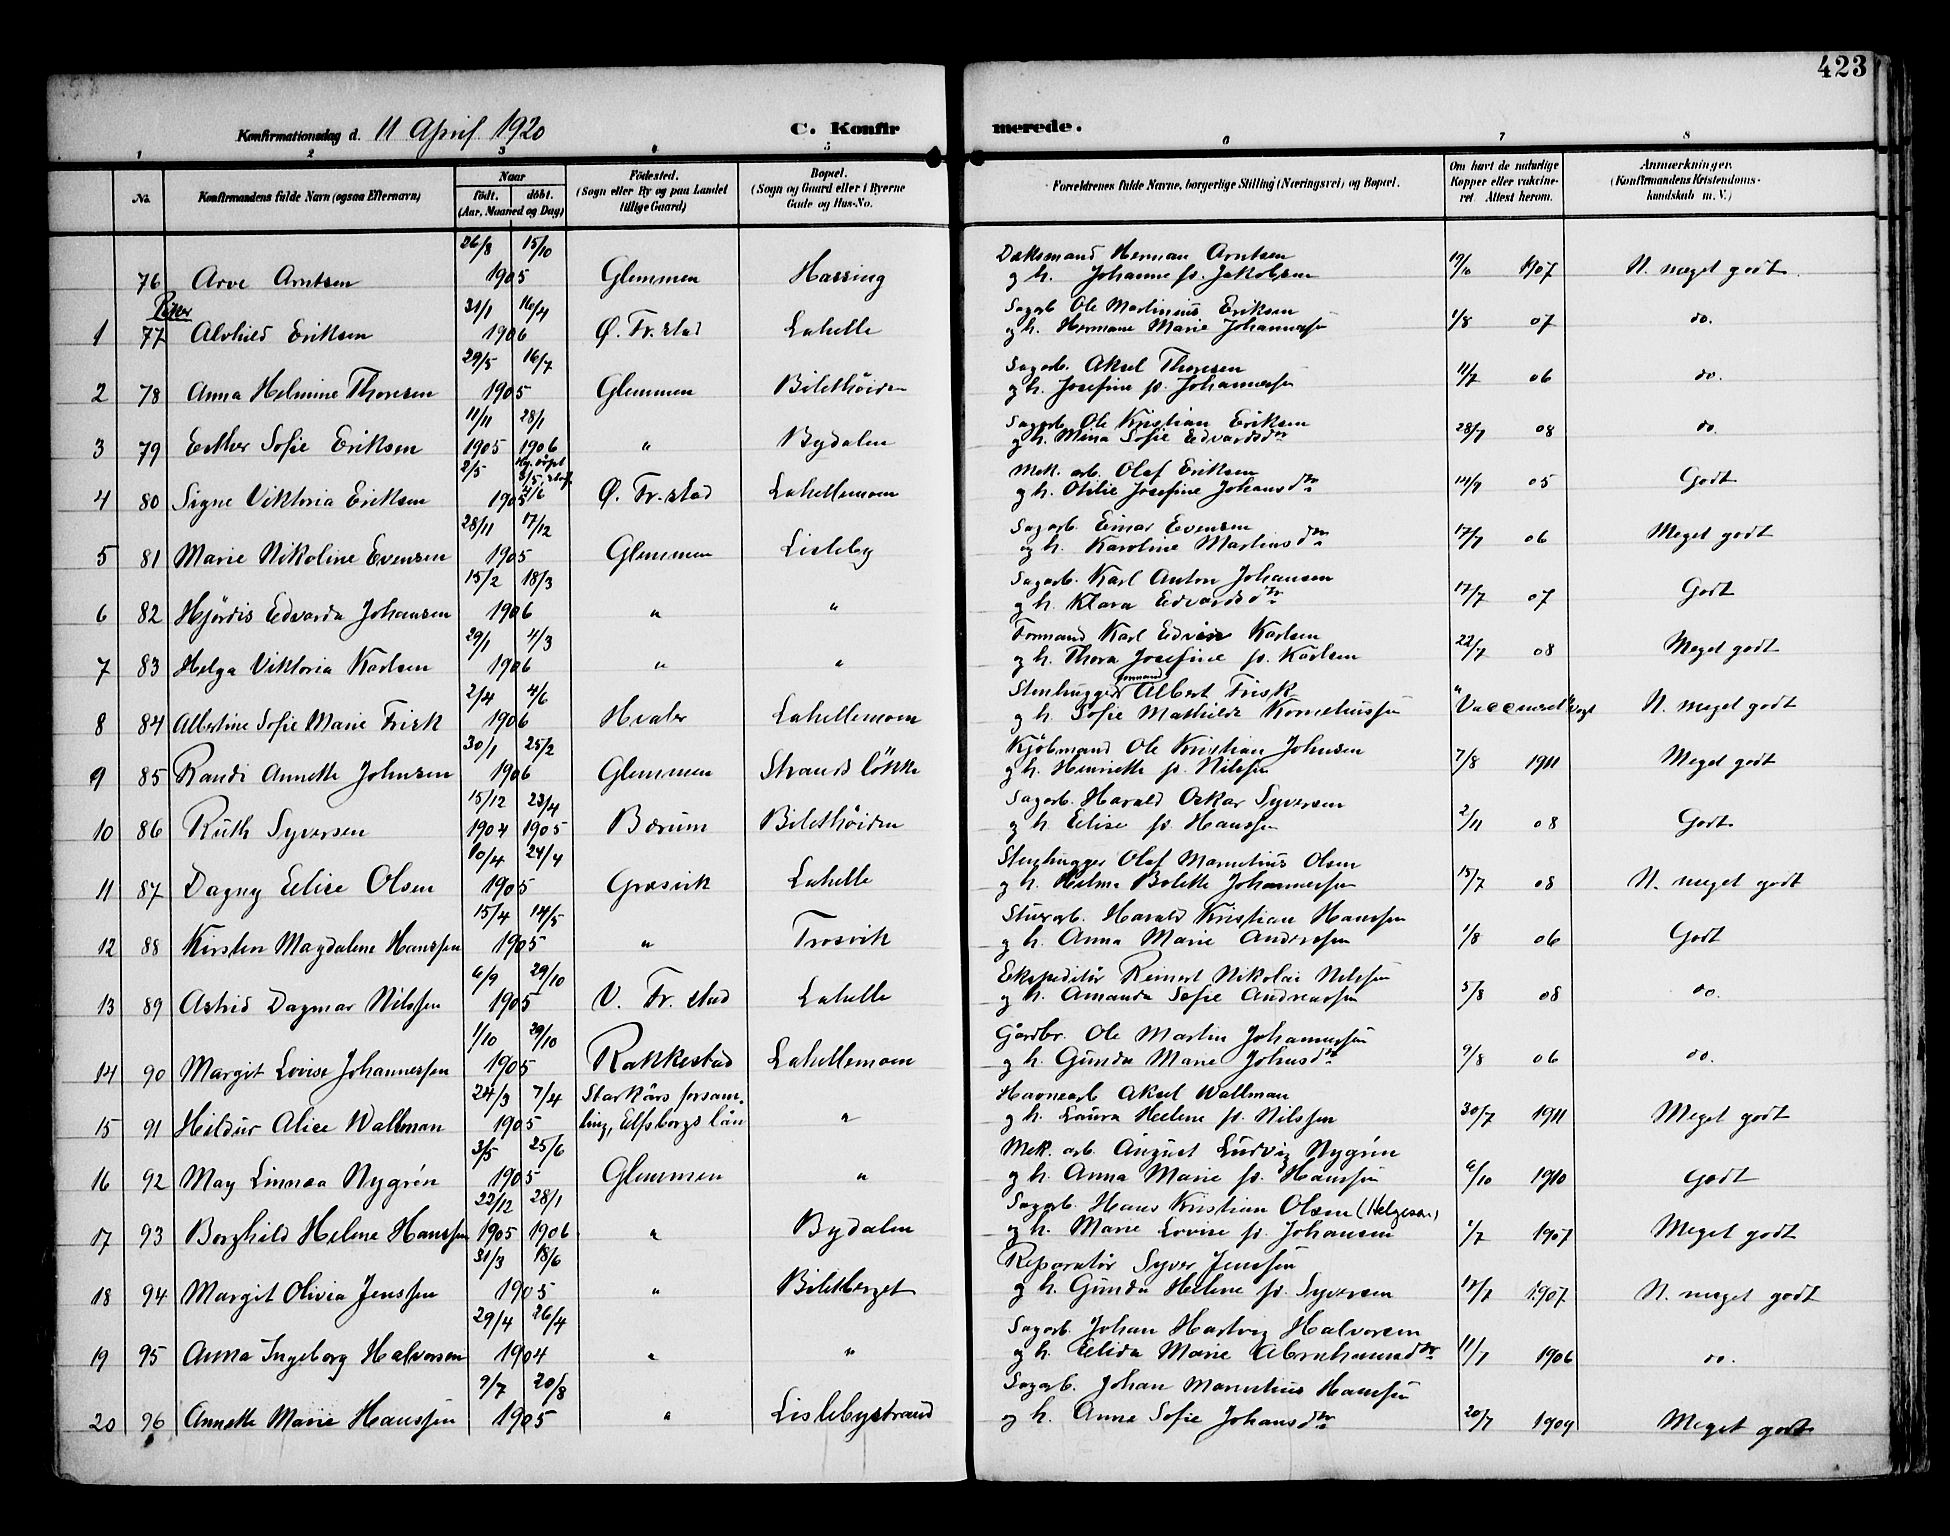 423
Konfirmationsdag d. 11 April 1920 C. Konfirmerede.
1 2 3 4 5 6 7 8
No. Konfirmandens fulde Navn (ogsaa Efternavn) Naar født. døbt. (Aar, Maaned og Dag) Fødested. (Sogn eller By og paa Landet tillige Gaard) Bopæl. (Sogn og Gaard eller i Byerne Gade og Hus-No. Forældrenes fulde Navne, borgerlige Stilling (Næringsvei) og Bopæl. Om havt de naturlige Kopper eller vaccineret Attest herom. Anmærkninger. (Konfirmandens Kristendomskundskab m. V.)
26/8 15/10 Dæksmand Herman Arntsen
76 Arve Arntsen 1905 Glemmen Hassing og h. Johanne f. Jakobsen 19/10 1907 N. meget godt.
Piker
31/1 16/4 Sagarb Ole Martinius Eriksen
1 77 Alvhild Eriksen 1906 Ø. Fr.stad Lahelle og h. Hermane Marie Johannessen 1/8 07 do.
29/5 16/7 Sagarb. Aksel Thoresen
2 78 Anna Helmine Thoresen 1905 Glemmen Bilethøiden og h. Josefine f. Johannessen 11/7 06 do.
11/11 28/1 Sagarb Ole Kristian Eriksen
3 79 Esther Sofie Eriksen 1905 1906 " Bydalen og h. Mina Sofie Edvardsdtr 28/7 08 do.
2/5 4/6 Mek. arb. Olaf Eriksen
4 80 Signe Viktoria Eriksen 1905 Ø. Fr.stad Lahellemoen og h. Otilie Josefine Johansdtr 14/9 05 Godt
28/11 17/12 Sagarb. Einar Evensen
5 81 Marie Nikoline Evensen 1905 Glemmen Lisleby og h. Karoline Martinsdtr 17/7 06 Meget godt
15/2 18/3 Sagarb. Karl Anton Johansen
6 82 Hjørdis Edvarda Johansen 1906 " " og h. Klara Edvardsdtr 17/7 07 Godt
29/1 4/3 Formand Karl Edvin Karlsen
7 83 Helga Viktoria Karlsen 1906 " " og h. Thora Josefine f. Karlsen 22/7 08 Meget godt
2/4 4/6 Stenhugger formand Albert Frisk
8 84 Albertine Sofie Marie Frisk 1906 Hvaler Lahellemoen og h. Sofie Mathilde Korneliussen "Vaccineret" N. meget godt
30/1 25/2 Kjøbmand Ole Kristian Johnsen
9 85 Randi Annette Johnsen 1906 Glemmen Strandsløkke og h. Henriette f. Nilssen 7/8 1911 Meget godt
15/12 23/4 Sagarb. Harald Oskar Syversen
10 86 Ruth Syversen 1904 1905 Bærum Bilethøiden og h. Elise f. Hanssen 2/11 08 Godt
10/4 24/4 Stenhugger Olaf Marentius Olsen
11 87 Dagny Elise Olsen 1905 Græsvik Lahelle og h. Helma Bolette Johannessen 15/7 08 N. meget godt
15/4 14/5 Stuerarb. Harald Kristian Hanssen
12 88 Kirsten Magdalene Hanssen 1905 " Trosvik og h. Anna Marie Anderssen 1/8 06 Godt
6/9 29/10 Ekspeditør Reinert Nikolai Nilssen
13 89 Astrid Dagmar Nilssen 1905 V. Fr.stad Lahelle og h. Amanda Sofie Andreassen 5/8 08 do.
1/10 29/10 Gårdbr. Ole Martin Johannessen
14 90 Margit Lovise Johannessen 1905 Rakkestad Lahellemoen og h. Gunda Marie Johnsdtr 9/8 06 do.
24/3 7/4 Starkärs försam- Havnearb Aksel Wallman
15 91 Heldur Alice Wallman 1905 ling, Elfsborgs län " og h. Laura Helene f. Nilssen 30/7 1911 Meget godt
3/5 25/6 Mek. arb. August Ludvig Nygrén
16 92 May Linnea Nygrén 1905 Glemmen " og h. Anna Marie f. Hanssen 6/10 1910 Godt
22/12 28/1 Sagarb. Hans Kristian Olsen (Helgesen)
17 93 Borghild Helene Hanssen 1905 1906 " Bydalen og h. Marie Lovise f. Johansen 1/7 1907 Meget godt
31/3 18/6 Reparatør Syver Jenssen
18 94 Margit Olivia Jenssen 1905 " Biletberget og h. Gunda Helene f. Syversen 17/7 1907 N. meget godt
29/4 26/4 Sagarb. Johan Hartvig Halvorsen
19 95 Anna Ingeborg Halvorsen 1904 " " og h. Elida Marie Abrahamsdtr 11/7 1906 do.
9/7 20/8 Sagarb. Johan Marentius Hanssen
20 96 Annette Marie Hanssen 1905 " Lislebystrand og h. Anne Sofie Johansdtr 20/7 1909 Meget godt